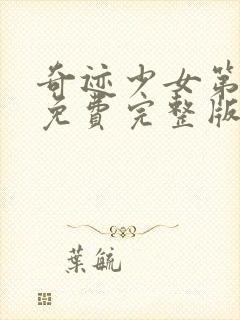 奇迹少女第
免費完整版
葉毓